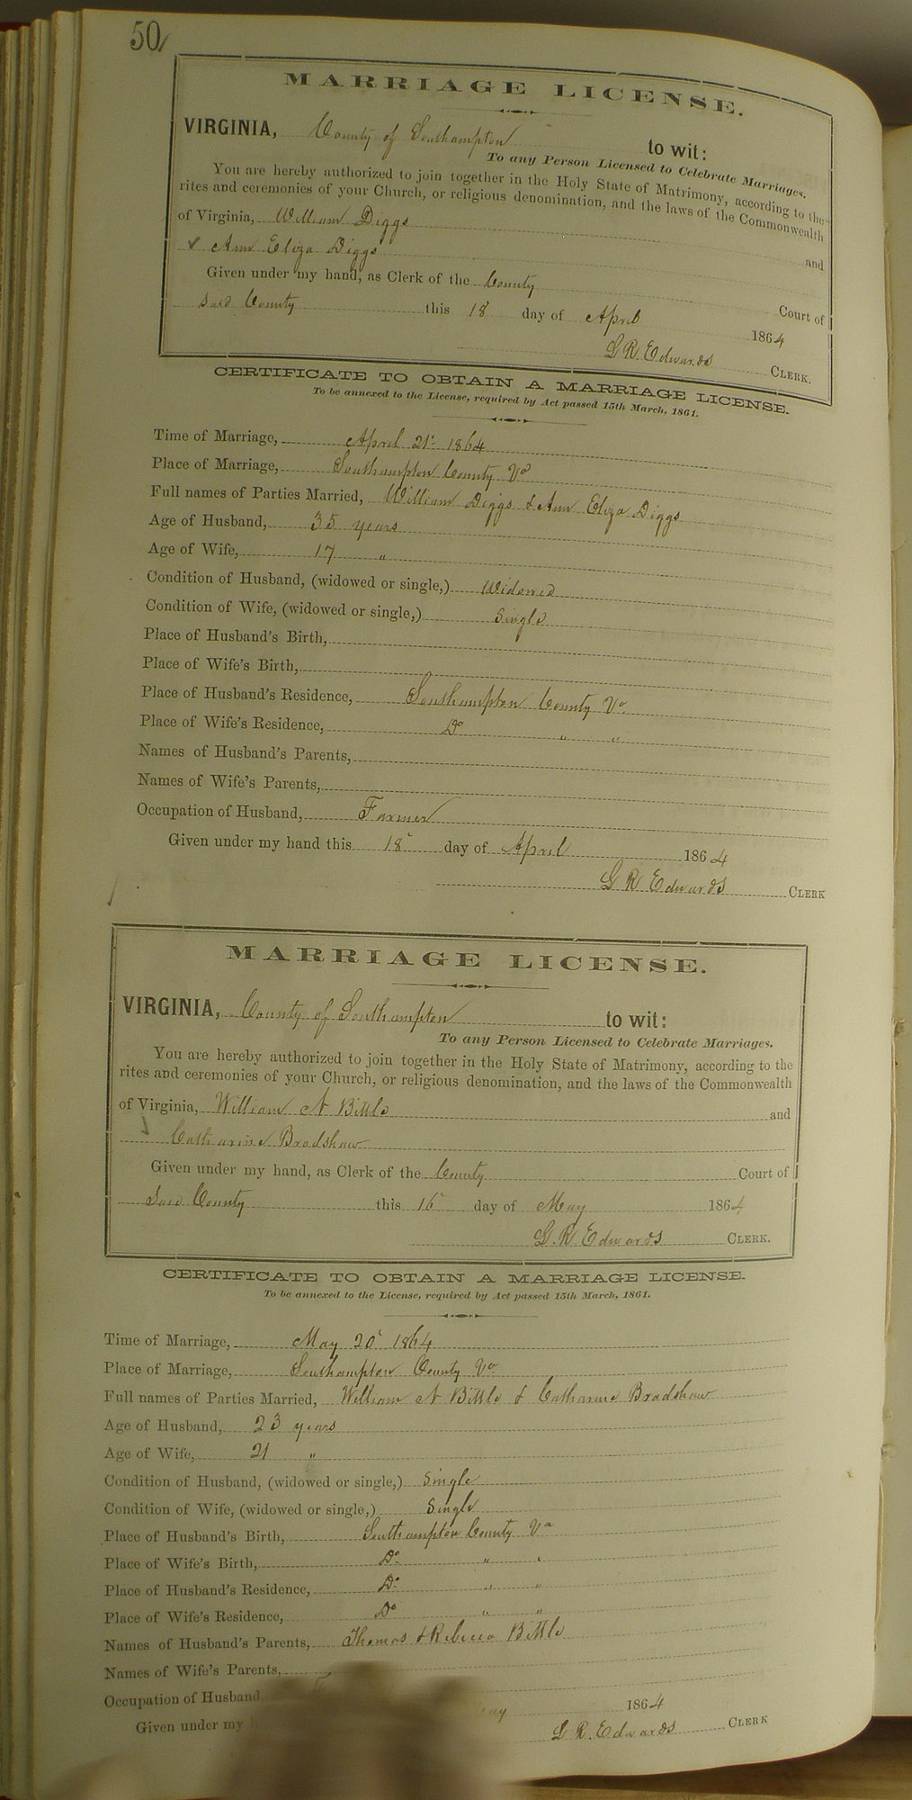 50
MARRIAGE LICENSE.
VIRGINIA, County of Southampton to wit:
To any Person Licensed to Celebrate Marriages.
You are hereby authorized to join together in the Holy State of Matrimony, according to the
rites and ceremonies of your Church, or religious denomination, and the laws of the Commonwealth
of Virginia, William Diggs and
Ann Eliza Diggs
Given under my hand, as Clerk of the County Court of
said County this 18 day of April 1864
G. R. Edwards CLERK.
CERTIFICATE TO OBTAIN A MARRIAGE LICENSE.
To be annexed to the License, required by Act passed 15th March, 1861.
Time of Marriage, April 21 1864
Place of Marriage, Southampton County Va
Full names of Parties Married, William Diggs & Ann Eliza Diggs
Age of Husband, 35 years
Age of Wife, 17 "
Condition of Husband, (widowed or single,) Widowed
Condition of Wife, (widowed or single,) Single
Place of Husband's Birth,
Place of Wife's Birth,
Place of Husband's Residence, Southampton County Va
Place of Wife's Residence, Do " "
Names of Husband's Parents,
Names of Wife's Parents,
Occupation of Husband, Farmer
Given under my hand this 18 day of April 1864
G R Edwards CLERK
MARRIAGE LICENSE.
VIRGINIA, County of Southampton to wit:
To any Person Licensed to Celebrate Marriages.
You are hereby authorized to join together in the Holy State of Matrimony, according to the
rites and ceremonies of your Church, or religious denomination, and the laws of the Commonwealth
of Virginia, William N Bittle and
Catharine Bradshaw
Given under my hand, as Clerk of the County Court of
said County this 16 day of May 1864
G. R. Edwards CLERK.
CERTIFICATE TO OBTAIN A MARRIAGE LICENSE.
To be annexed to the License, required by Act passed 15th March, 1861.
Time of Marriage, May 20 1864
Place of Marriage, Southampton County Va
Full names of Parties Married, William N Bittle & Catharine Bradshaw
Age of Husband, 23 years
Age of Wife, 21 "
Condition of Husband, (widowed or single,) Single
Condition of Wife, (widowed or single,) Single
Place of Husband's Birth, Southampton County Va
Place of Wife's Birth, Do " "
Place of Husband's Residence, Do " "
Place of Wife's Residence, Do " "
Names of Husband's Parents, Thomas & Rebecca Bittle
Names of Wife's Parents,
Occupation of Husband
Given under my 1864
G. R. Edwards CLERK